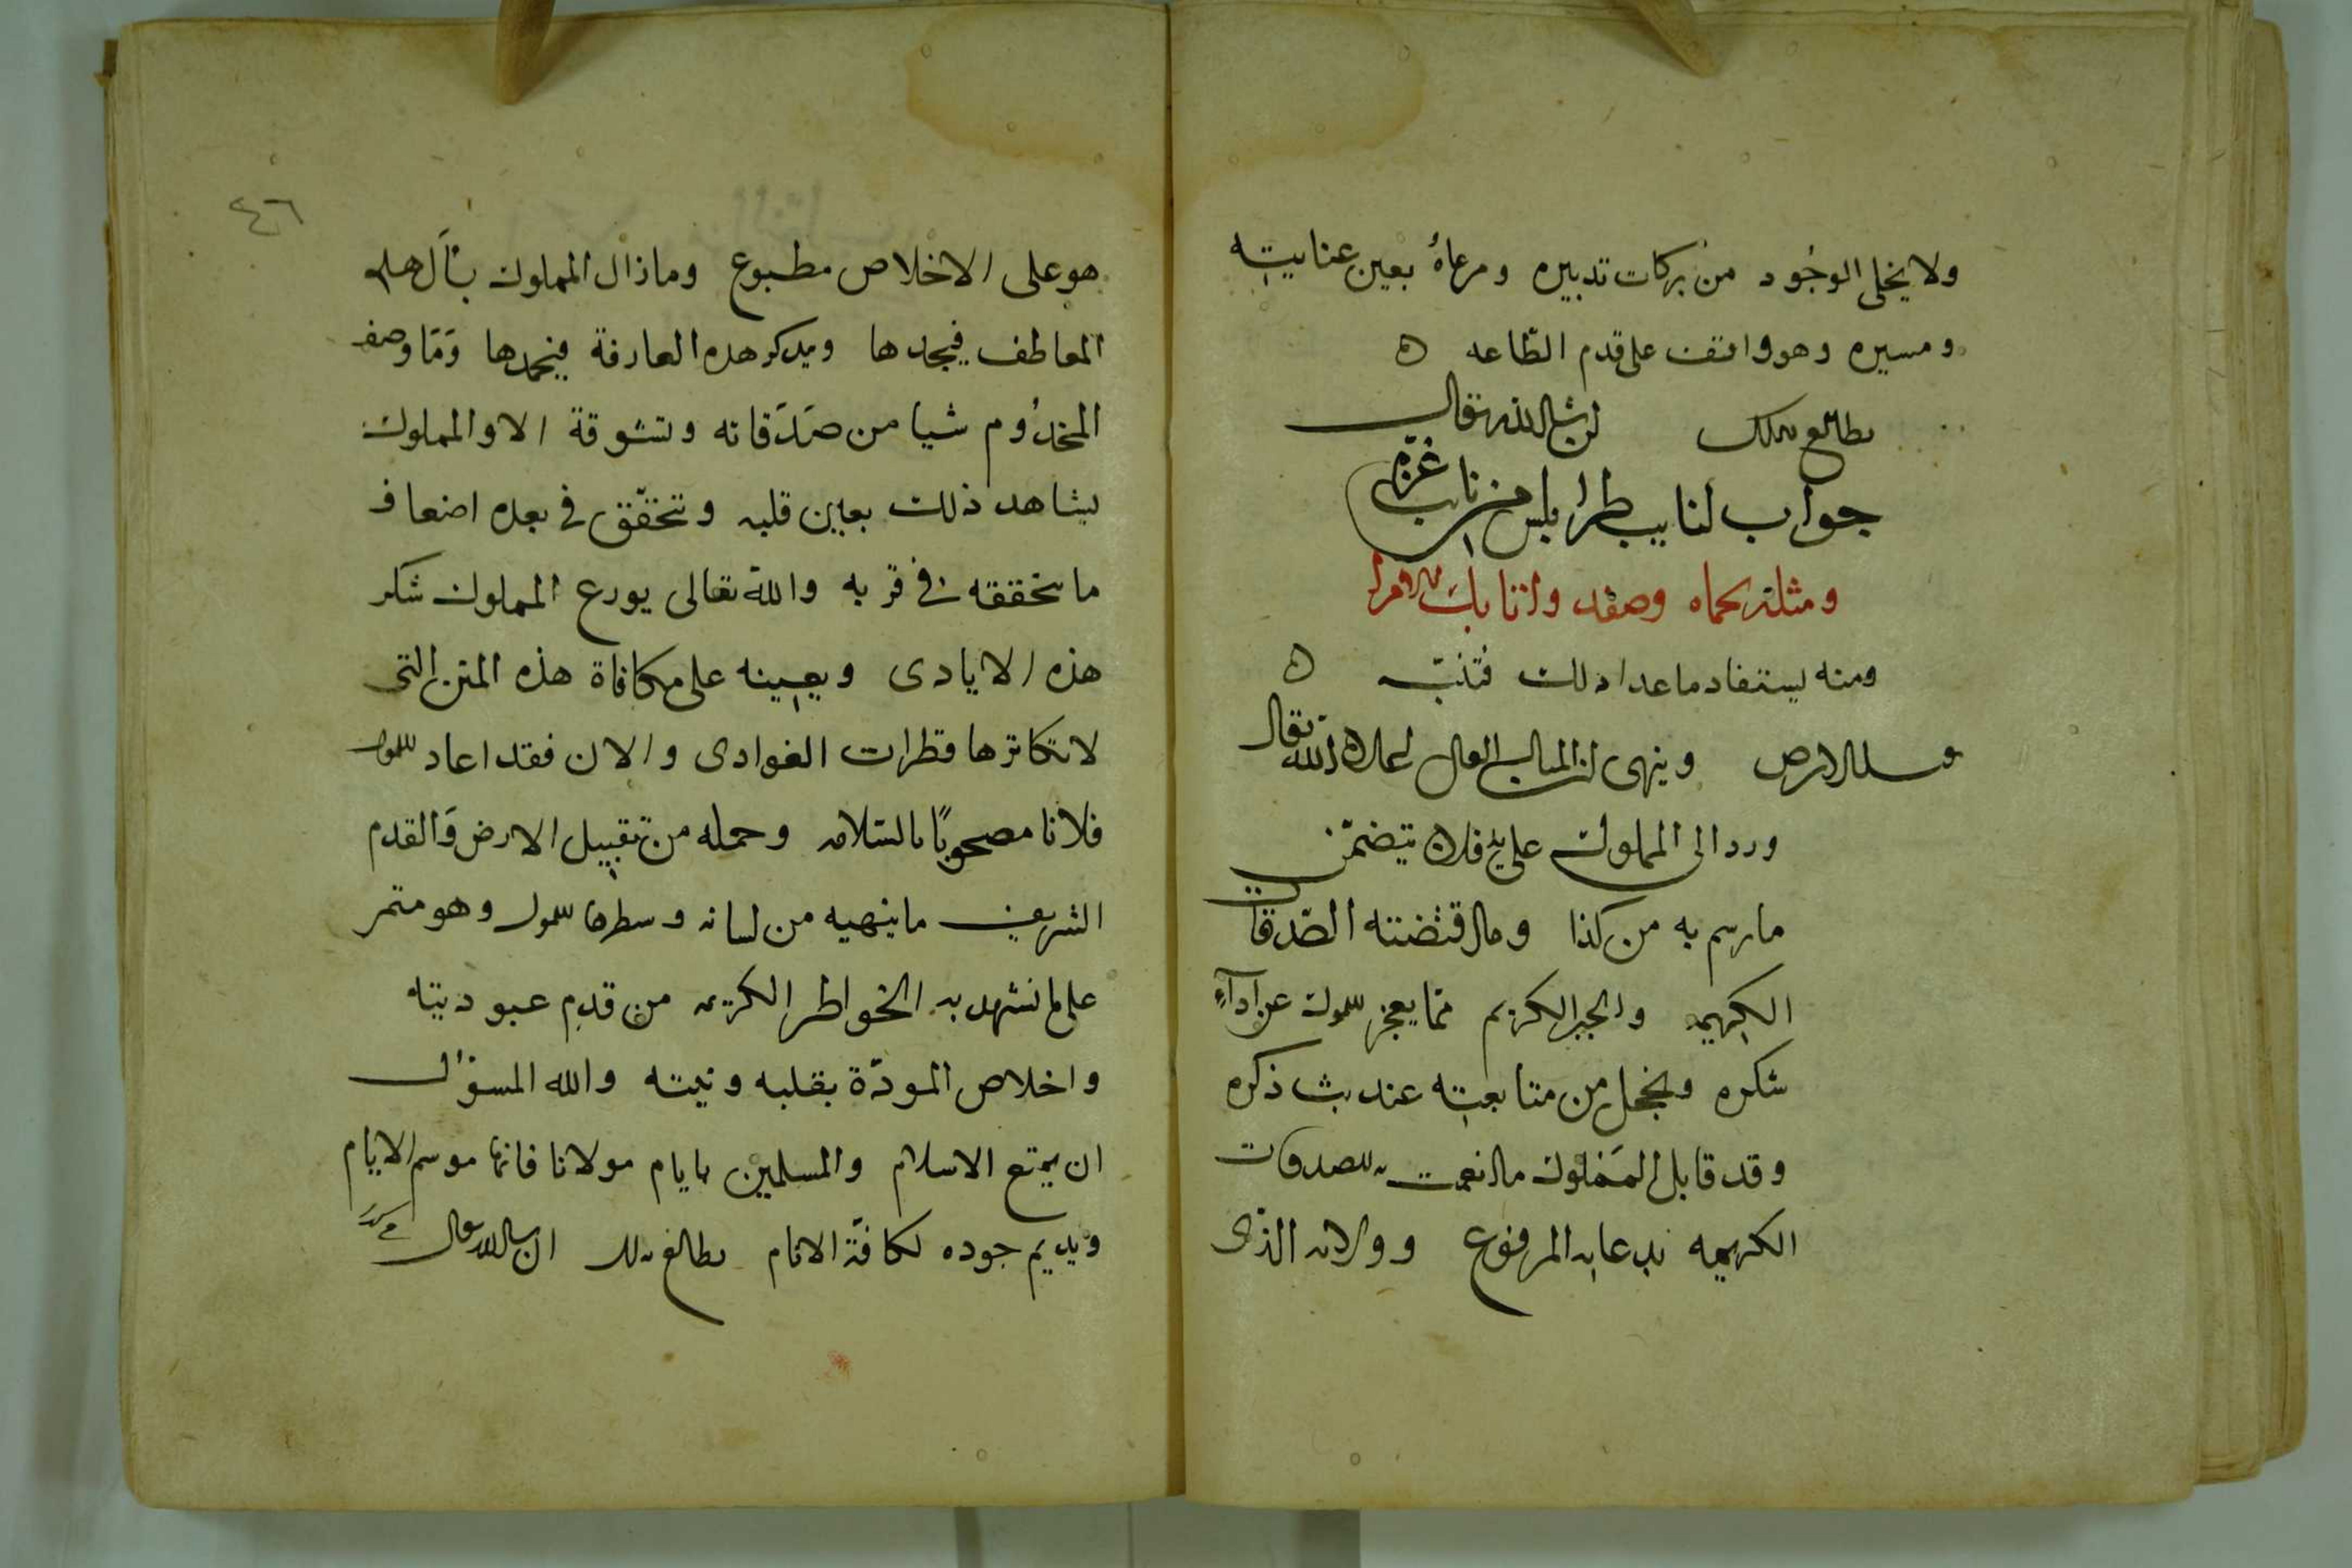 ولا يخلى الوجود من بركات تدبيره ومرعاهُ بعين عنايته
ومسيره وهو واقف على قدم الطّاعه ه
يطالع بذلك ان شا الله تعالى
جواب لنايب طرابلس من نايب غزة
ومثله بحماه وصفد واتنابك الامرا
ومنه يستفاد ما عدا ذلك فتنبّه ه
يقبل الارض وينهى ان المثال العالى اعلاه الله تعالى
ورد الى المملوك على يد فلان يتضمّن
ما رسم به من كذا وما اقتضته الصّدقات
الكريمه والجبر الكريم ممّا يعجز المملوك عن اداءِ
شكره ويخجل من متابعته عند بث ذكره
وقد قابل المملوك ما انعمت به الصدقات
الكريمه بدعايه المرفوع وولايه الذى
٤٦
هو على الاخلاص مطبوع ومازال المملوك يسأل هذه
المعاطف فيجدها ويدكر هده العارفة فيحمدها وَمَا وصف
المخدُوم شيا من صَدَقاته وتشوقة الا والمملوك
يشاهد ذلك بعين قلبه وتحقّق فى بعده اضعاف
ما يحققه فى قربه والله تعالى يورع المملوك شكر
هذه الايادى ويعينه على مكافاة هذه المنن التى
لا تكاثرها قطرات الغوادى والان فقد اعاد المملوك
فلانا مصحوبًا بالسّلامه وحمله من تقبيل الارض وَالقدم
الشريف ما ينهيه من لسانه وسطرها المملوك وهو مستمر
على ما تشهد به الخواطر الكريمه من قدم عبوديته
واخلاص المودّة بقلبه ونيته والله المسؤل
ان يمتع الاسلام والمسلمين بايام مولانا فانها موسم الايام
ويديم جوده لكافّة الانام يطالع بذلك ان شا الله تعالى